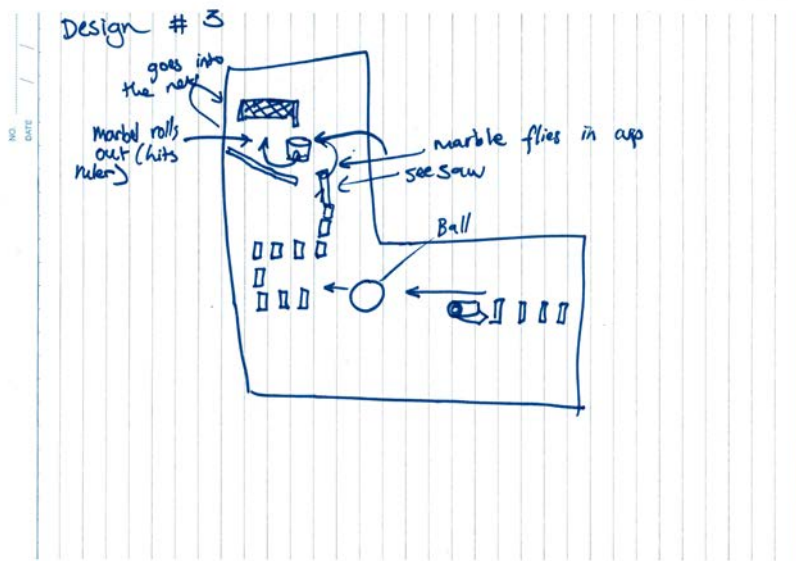 Design # 3
goes into
the net
marbel rolls
out (hits
ruler)
marble flies in cup
see saw
Ball
NO.
DATE / /